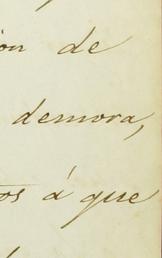 ón de
demora,
os á que